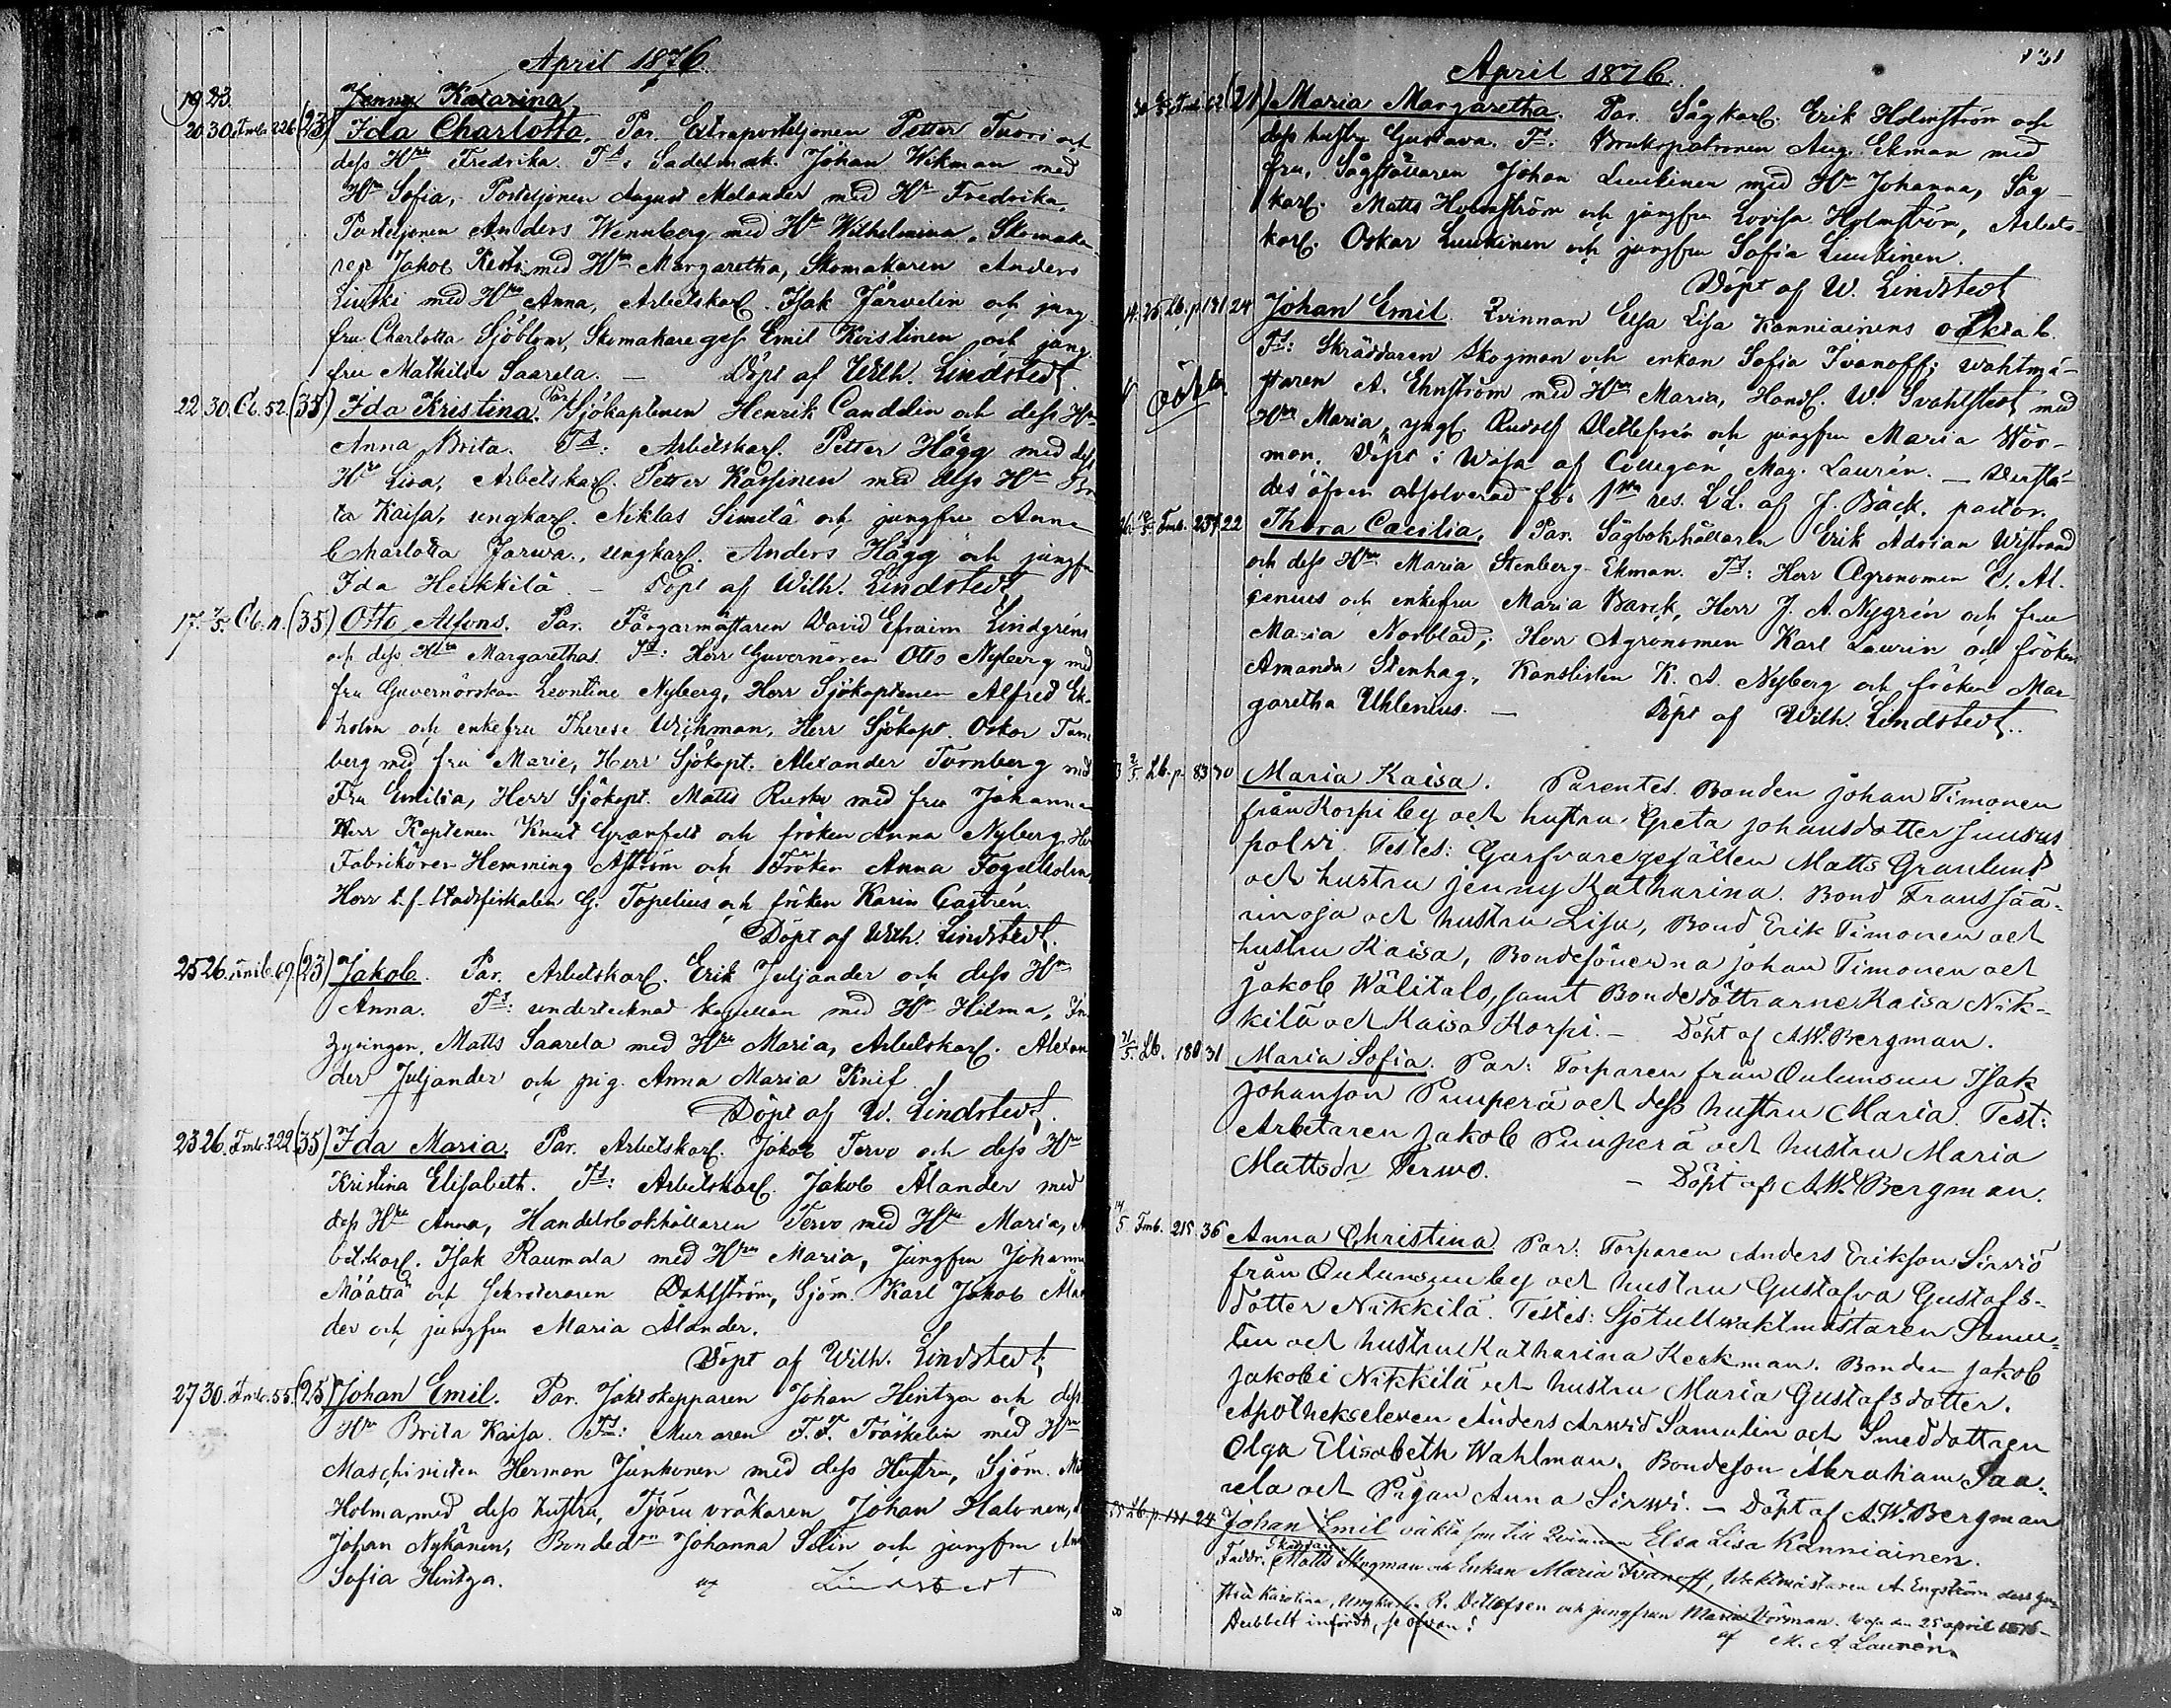 April 1876.
19 23. Jenny Katarina
20 30. Fmb. 226 (23) Ida Charlotta. Par. Extraposteljonen Petter Tuori och
dess Hru Fredrika. Ts: Sadelmak. Johan Wikman med
Hru Sofia, Posteljonen August Melander med Hru Fredrika,
Posteljonen Anders Wennberg med Hru Wilhelmina, Skomaka-
ren Jakob Kesti med Hru Margaretha, Skomakaren Anders
Liuski med Hru Anna, Arbetskarl. Isak Järvelin och jung-
fru Charlotta Sjöblom, Skomakareges. Emil Kristinen och jung
fru Mathilda Saarela. — Döpt af Wilh. Lindstedt
22 30. Cb. 52. (35) Ida Kristina. Par. Sjökaptenen Henrik Candelin och dess Hru
Anna Brita. Ts: Arbetskarl. Petter Hägg med dess
Hru Lisa, Arbetskarl. Petter Kassinen med dess Hru Bri
ta Kaisa, ungkarl. Niklas Similä och jungfru Anna
Charlotta Jarwa, ungkarl. Anders Hägg och jungfru
Ida Heikkilä. — Döpt af Wilh. Lindstedt
17. 7/5. Cb. 11. (35) Otto Alfons. Par. Färgarmästaren David Efraim Lindgrens
och dess Hru Margarethas. Ts: Herr Guvernören Otto Nyberg med
fru Guvernörskan Leontine Nyberg, Herr Sjökaptenen Alfred Ek-
holm och enkefru Therese Wichman, Herr Sjökapt. Oskar Torn
berg med fru Marie, Herr Sjökapt. Alexander Tornberg med
Fru Emilia, Herr Sjökapt. Matts Ruska med fru Johanna
Herr Kaptenen Knut Granfelt och fröken Anna Nyberg, Herr
Fabrikören Hemming Åström och Fröken Anna Fogelholm,
Herr t. f. Stadsfiskalen G. Topelius och fröken Karin Castrén.
Döpt af Wilh. Lindstedt.
25 26. 69. (23) Jakob. Par. Arbetskarl. Erik Juljander och dess Hru
Anna. Ts: undertecknad kapellan med Hru Hilma, In-
hysingen Matts Saarela med Hru Maria, Arbetskarl. Alexan
der Juljander och pig. Anna Maria Knif.
Döpt af W. Lindstedt.
23 26. Fmb. 322. (35) Ida Maria. Par. Arbetskarl. Jakob Tervo och dess Hru
Kristina Elisabeth. Ts: Arbetskarl. Jakob Ålander med
dess Hru Anna, Handelsbokhållaren Tervo med Hru Maria, Ar
betskarl. Isak Raumala med Hru Maria, Jungfru Johanna
Määttä och Sekreteraren Dahlström, Sjöm. Karl Jakob Ålan
der och jungfru Maria Ålander.
Döpt af Wilh. Lindstedt.
27 30. Fmb. 55. (25) Johan Emil. Par. Jaktskepparen Johan Hintza och dess
Hru Brita Kaisa. Ts: Muraren F. F. Träskelin med Hru
Maschinisten Herman Junkonen med dess Hustru, Sjöm.
Holma med dess hustru, Tjäru vräkaren Johan Halonen,
Johan Nykänen, Bonded:on Johanna Selin och jungfru
Sofia Hintza. af Lindstedt
131
April 1876.
30 Fmb. 62 (21) Maria Margaretha. Par. Sågkarl. Erik Holmström och
dess hustru Gustava. Ts: Brukspatronen Aug. Ekman med
fru, Sågställaren Johan Luukinen med Hru Johanna, Såg-
karl. Matts Holmström och jungfru Lovisa Holmström, Arbets-
karl. Oskar Luukinen och jungfru Sofia Luukinen.
Döpt af W. Lindstedt
14. 25 Lb. p. 181 24 Johan Emil. Qvinnan Elsa Lisa Kanniainens oäkta b.
oäkta.
Ts: Skräddaren Skogman och enkan Sofia Ivanoff; vahtmä-
staren A. Engström med Hru Maria, Handl. W. Svahlstedt med
Hru Maria, yngl. Rudolf Detlefsén och jungfru Maria Wör-
man. Döpt i Wasa af Collegan Mag. Laurén. — Derstä-
des äfven absolverad för 1sta res. LL. af J. Bäck, pastor.
26. 12/5. Fmb. 237 22 Thora Cæcilia. Par. Sågbokhållaren Erik Adrian Wistrand
och dess Hru Maria Stenberg-Ekman. Ts: Herr Agronomen E. Al-
cenius och enkefru Maria Barck, Herr J. A. Nygrén och fru
Maria Norblad; Herr Agronomen Karl Laurin och fröken
Amanda Stenhag, Kanslisten K. A. Nyberg och fröken Mar-
garetha Uhlenius. — Döpt af Wilh. Lindstedt.
3 2/5. Lb. p. 83 30 Maria Kaisa. Parentes. Bonden Johan Timonen
från Korpi by och hustru Greta Johansdotter Juusus
polvi. Testes: Garfvaregesällen Matts Granlund
och hustru Jenny Katharina. Bond Frans Jää-
rinoja och hustru Lisa, Bond Erik Timonen och
hustru Kaisa, Bondesönerna Johan Timonen och
Jakob Wälitalo, samt Bondedöttrarne Kaisa Nik-
kilä och Kaisa Korpi. — Döpt af A.W. Bergman.
21/5. Lb. 180 31 Maria Sofia. Par: Torparen från Oulunsuu Isak
Johanson Puuperä och dess hustru Maria. Test:
Arbetaren Jakob Puuperä och hustru Maria
Mattsdr Terwo. — Döpt af A.W. Bergman.
14/5 Fmb. 215 36 Anna Christina Par: Torparen Anders Erikson Sirviö
från Oulunsuu by och hustru Gustafva Gustafs-
dotter Nikkilä. Testes: Sjötullvaktmästaren Samu-
len och hustru Katharina Keckman. Bonden Jakob
Jakobi Nikkilä och hustru Maria Gustafsdotter.
Apothekseleven Anders Arwid Samulin och Smeddottren
Olga Elisabeth Wahlman. Bondeson Abraham Saa-
rela och Pigan Anna Sirwi. — Döpt af A.W. Bergman
25 Lb. p. 181 24 Johan Emil oäkta son till Qvinnan Elsa Lisa Kanniainen.
Faddr. Skräddare Matts Skogman och Enkan Maria Ivanoff, Waktmästaren A. Engström dess hu-
stru Karolina, Ungkarln R. Detlefsen och jungfrun Maria Vörman. Wasa den 25 april 1876 -
Dubbelt infördt, se ofvan! af M. A. Laurén.